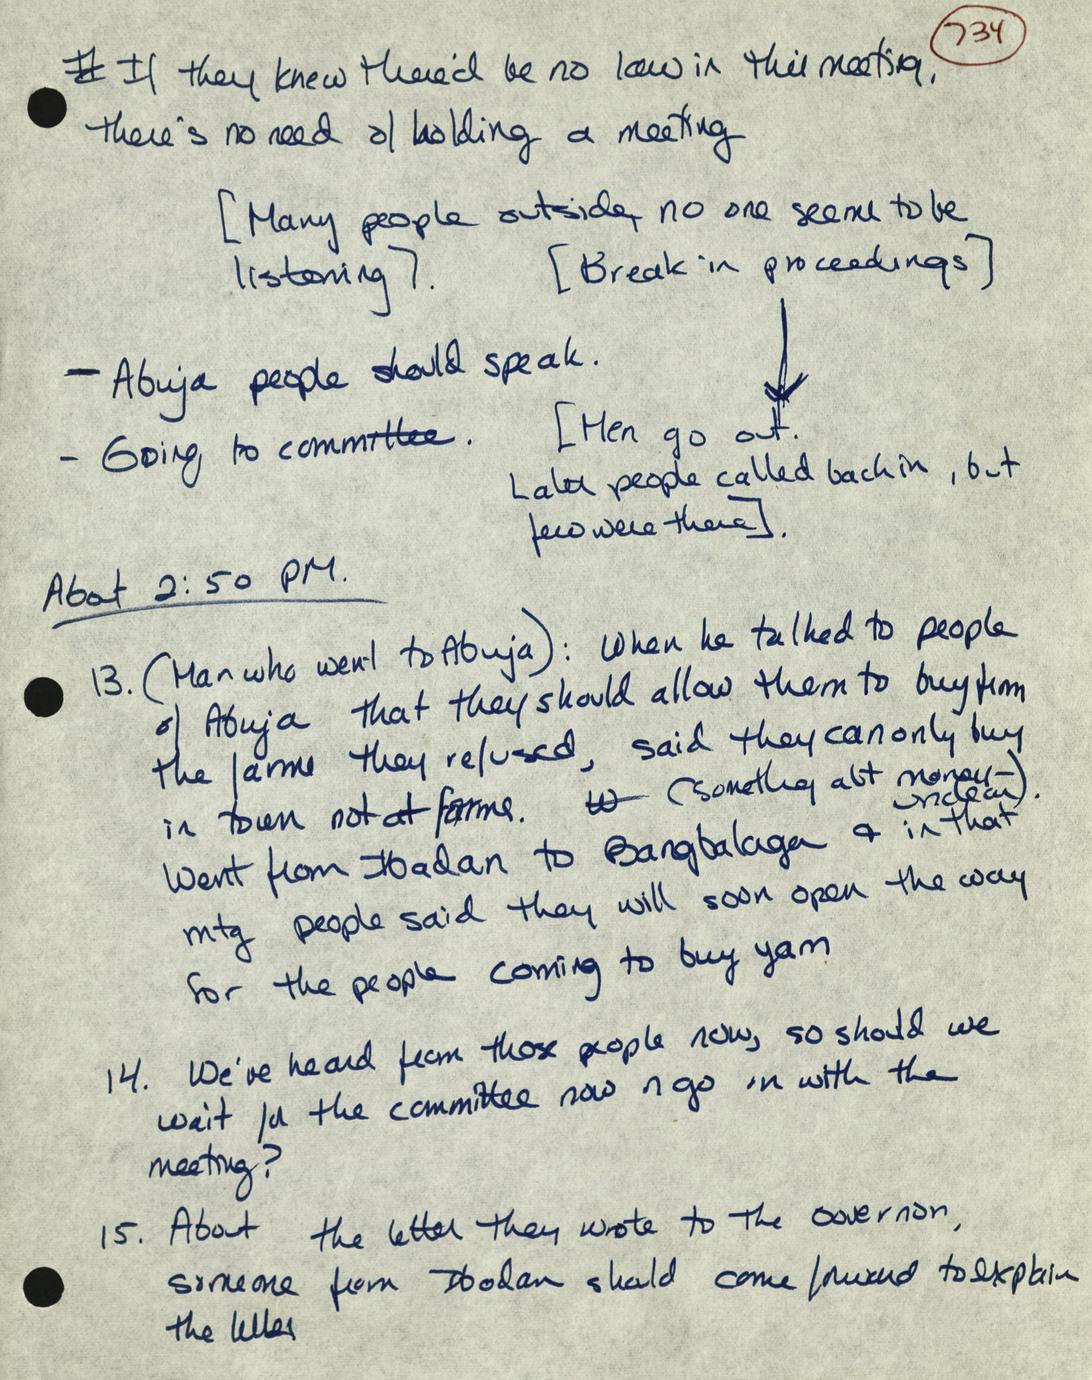 734
If they knew there'd be no law in this meeting,
there's no need of holding a meeting
[Many people outside, no one seems to be
listening].
[Break in proceedings]
- Abuja people should speak.
- Going to committee.
[Men go out.
Later people called back in, but
few were there].
About 2:50 PM.
13. (Man who went to Abuja): When he talked to people
of Abuja that they should allow them to buy from
the farms they refused, said they can only buy
in town not at farms. (Something abt money-
unclear).
Went from Ibadan to Bangbalaga & in that
mtg people said they will soon open the way
for the people coming to buy yam
14. We've heard from those people now, so should we
wait for the committee now n go in with the
meeting?
15. About the letter they wrote to the Governor,
someone from Ibadan should come forward to explain
the letter